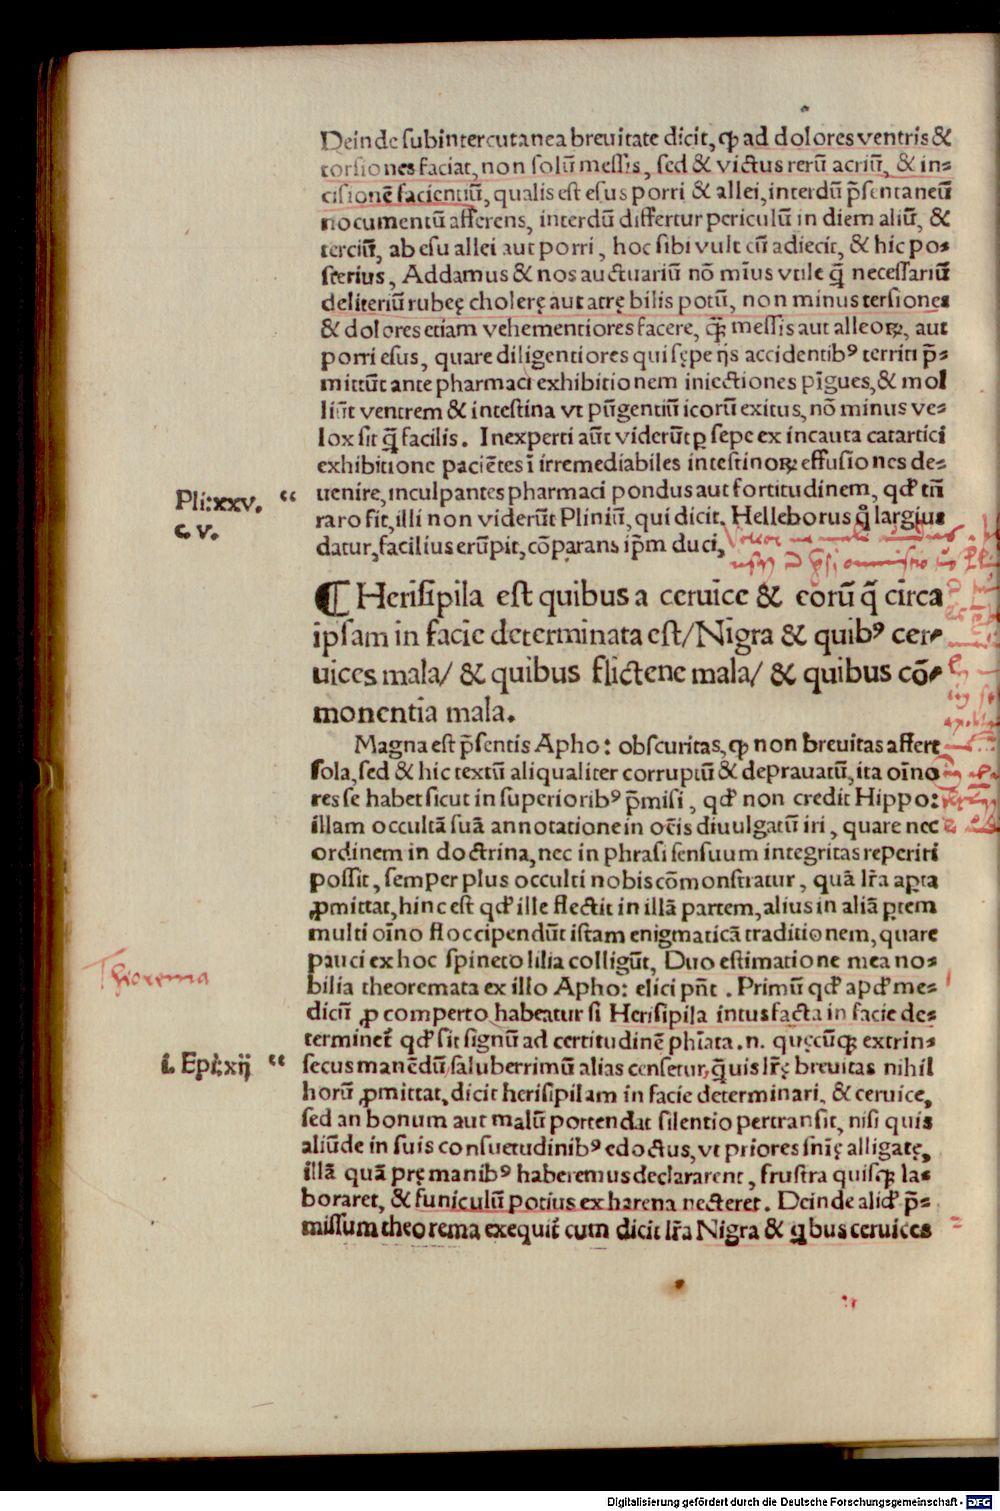 Deinde subintercutanea breuitate dicit, ꝙ ad dolores ventris &
torsiones faciat, non solū messis, sed & victus rerū acriū, & in-
cisionē facientiū, qualis est esus porri & allei, interdū p̄sentaneū
nocumentū afferens, interdū differtur periculū in diem aliū, &
terciū, ab esu allei aut porri, hoc sibi vult cū adiecit, & hic po-
sterius, Addamus & nos auctuariū nō mīus vtile q̄ necessariū
deliteriū rubeę cholerę aut atrę bilis potū, non minus tersiones
& dolores etiam vehementiores facere, q̄ꝫ messis aut alleoꝝ, aut
porri esus, quare diligentiores qui sępe ijs accidentibꝰ territi p̄-
mittūt ante pharmaci exhibitionem iniectiones pīgues, & mol
liūt ventrem & intestina vt pūgentiū icorū exitus, nō minus ve-
lox sit q̄ facilis. Inexperti aūt viderūt ꝑ sepe ex incauta catartici
exhibitione paciētes ī irremediabiles intestinoꝝ effusiones de-
Pli: xxv. “ uenire, inculpantes pharmaci pondus aut fortitudinem, qđ tn̄
c. v. raro fit, illi non viderūt Pliniū, qui dicit. Helleborus q̊ largius
datur, facilius erūpit, cōparans ip̄m duci,
¶ Herisipila est quibus a ceruice & eorū q̄ circa
ipsam in facie determinata est/ Nigra & quibꝰ cer-
uices mala/ & quibus flictene mala/ & quibus cō-
monentia mala.
Magna est p̄sentis Apho: obscuritas, ꝙ non breuitas affert
sola, sed & hic textū aliqualiter corruptū & deprauatū, ita oīno
res se habet sicut in superioribꝰ p̄misi, qđ non credit Hippo:
illam occultā suā annotatione in oēis diuulgatū iri, quare nec
ordinem in doctrina, nec in phrasi sensuum integritas reperiri
possit, semper plus occulti nobis cōmonstratur, quā lr̄a apta
ꝓmittat, hinc est qđ ille flectit in illā partem, alius in aliā ꝑtem
multi oīno floccipendūt istam enigmaticā traditionem, quare
pauci ex hoc spineto lilia colligūt, Duo estimatione mea no-
Theorema
bilia theoremata ex illo Apho: elici pn̄t. Primū qđ apđ me-
dicū ꝓ comperto habeatur si Herisipila intus facta in facie de-
terminet̄ qđ sit signū ad certitudinē phīata. n. quęcūqꝫ extrin-
i. Epi: xij “ secus manēdū, saluberrimū alias censetur, q̄uis lr̄ę breuitas nihil
horū ꝓmittat, dicit herisipilam in facie determinari, & ceruice,
sed an bonum aut malū portendat silentio pertransit, nisi quis
aliūde in suis consuetudinibꝰ edoctus, vt priores sn̄ię alligatę,
illā quā prę manibꝰ haberemus declararent, frustra quisqꝫ la-
boraret, & funiculū potius ex harena necteret. Deinde aliđ p̄-
missum theorema exequit̄ cum dicit lr̄a Nigra & q̇bus ceruices
Digitalisierung gefördert durch die Deutsche Forschungsgemeinschaft - DFG